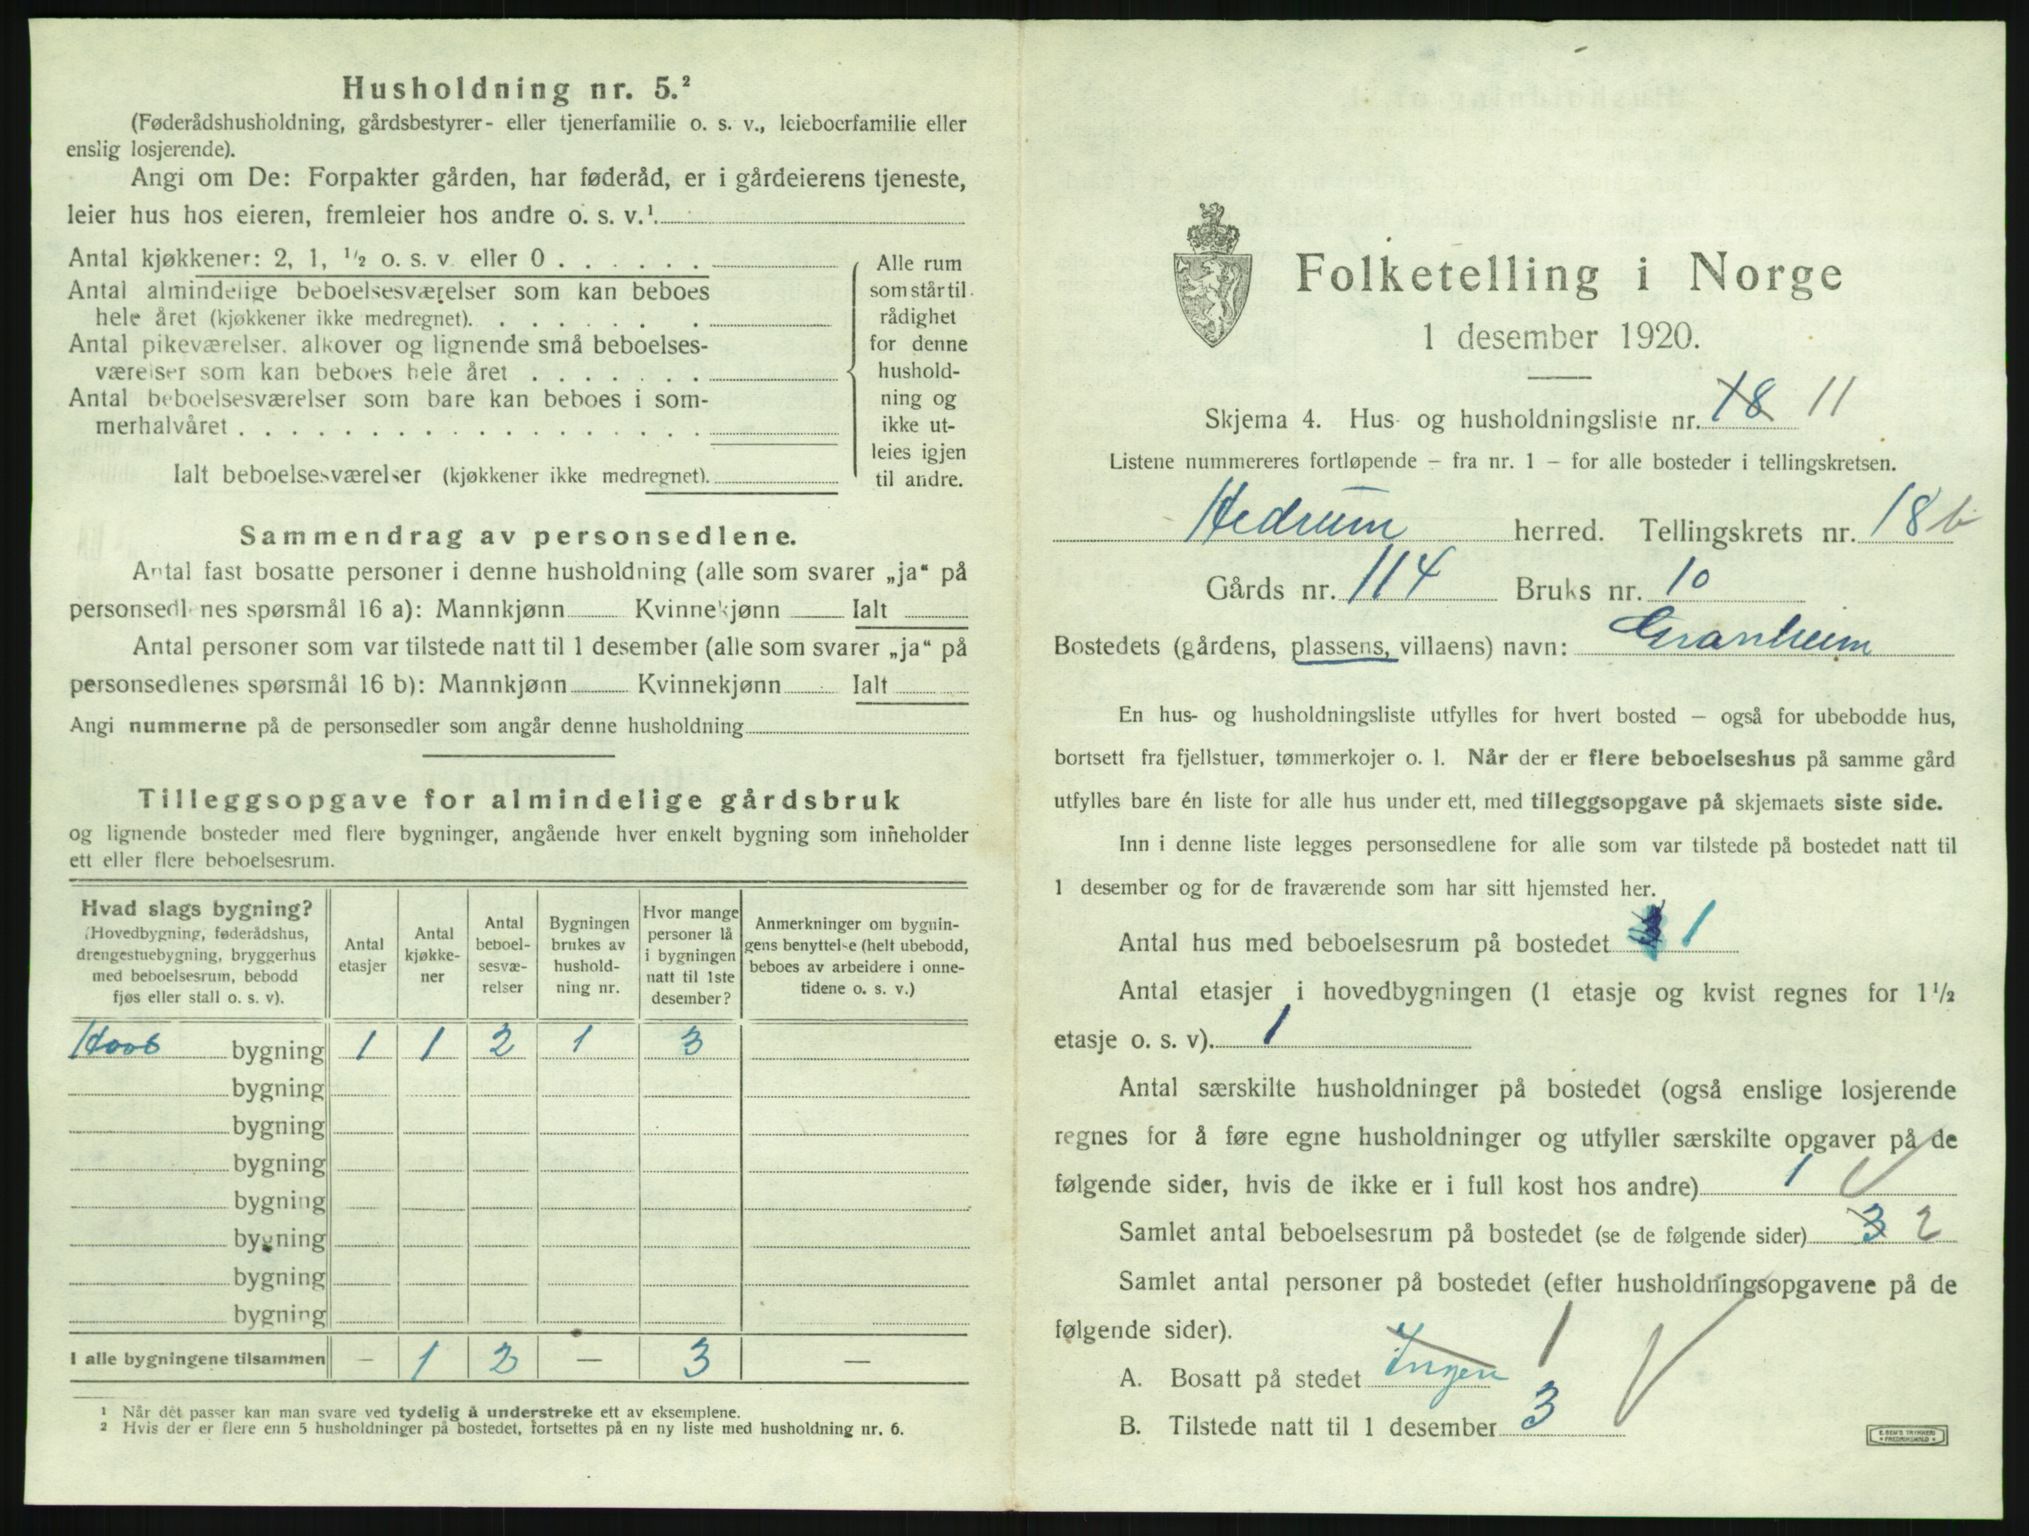 Husholdning nr. 5.²
(Føderådshusholdning, gårdsbestyrer- eller tjenerfamilie o. s. v., leieboerfamilie eller
enslig losjerende).
Angi om De: Forpakter gården, har føderåd, er i gårdeierens tjeneste,
leier hus hos eieren, fremleier hos andre o. s. v.¹.
Antal kjøkkener: 2, 1, ½ o. s. v eller 0 . . . . . .
Antal almindelige beboelsesværelser som kan beboes
hele året (kjøkkener ikke medregnet). . . . . . . .
Antal pikeværelser. alkover og lignende små beboelses-
værelser som kan beboes hele året . . . . . . .
Antal beboelsesværelser som bare kan beboes i som-
merhalvåret . . . . . . . . . . . . . . . . . .
Ialt beboelsesværelser (kjøkkener ikke medregnet).
Alle rum
som står til
rådighet
for denne
hushold-
ning og
ikke ut-
leies igjen
til andre.
Sammendrag av personsedlene.
Antal fast bosatte personer i denne husholdning (alle som svarer „ja“ på
personsedlenes spørsmål 16 a): Mannkjønn Kvinnekjønn Ialt
Antal personer som var tilstede natt til 1 desember (alle som svarer „ja“ på
personsedlenes spørsmål 16 b): Mannkjønn Kvinnekjønn Ialt
Angi nummerne på de personsedler som angår denne husholdning
Tilleggsopgave for almindelige gårdsbruk
og lignende bosteder med flere bygninger, angående hver enkelt bygning som inneholder
ett eller flere beboelsesrum.
Hvad slags bygning?
(Hovedbygning, føderådshus,
drengestuebygning, bryggerhus
med beboelsesrum, bebodd
fjøs eller stall o. s. v).
Antal
etasjer
Antal
kjøkke-
ner
Antal
beboel-
sesvæ-
relser
Bygningen
brukes av
hushold-
ning nr.
Hvor mange
personer lå
i bygningen
natt til 1ste
desember?
Anmerkninger om bygnin-
gens benyttelse (helt ubebodd,
beboes av arbeidere i onne-
tidene o. s. v.)
bygning 1 1 2 1 3
bygning
bygning
bygning
bygning
bygning
bygning
bygning
I alle bygningene tilsammen — 1 2 — 3 —
¹ Når dét passer kan man svare ved tydelig å understreke ett av eksemplene.
² Hvis der er flere enn 5 husholdninger på bostedet, fortsettes på en ny liste med husholdning nr. 6.
Folketelling i Norge
1 desember 1920.
Skjema 4. Hus- og husholdningsliste nr. 18 11
Listene nummereres fortløpende – fra nr. 1 – for alle bosteder i tellingskretsen.
Hedrum herred. Tellingskrets nr. 18 b
Gårds nr. 114 Bruks nr. 10
Bostedets (gårdens, plassens, villaens) navn: Granheim
En hus- og husholdningsliste utfylles for hvert bosted – også for ubebodde hus,
bortsett fra fjellstuer, tømmerkojer o. l. Når der er flere beboelseshus på samme gård
utfylles bare én liste for alle hus under ett, med tilleggsopgave på skjemaets siste side.
Inn i denne liste legges personsedlene for alle som var tilstede på bostedet natt til
1 desember og for de fraværende som har sitt hjemsted her.
Antal hus med beboelsesrum på bostedet 1
Antal etasjer i hovedbygningen (1 etasje og kvist regnes for 1½
etasje o. s. v). 1
Antal særskilte husholdninger på bostedet (også enslige losjerende
regnes for å føre egne husholdninger og utfyller særskilte opgaver på de
følgende sider, hvis de ikke er i full kost hos andre) 1
Samlet antal beboelsesrum på bostedet (se de følgende sider) 3 2
Samlet antal personer på bostedet (efter husholdningsopgavene på de
følgende sider).
A. Bosatt på stedet Ingen 1
B. Tilstede natt til 1 desember 3